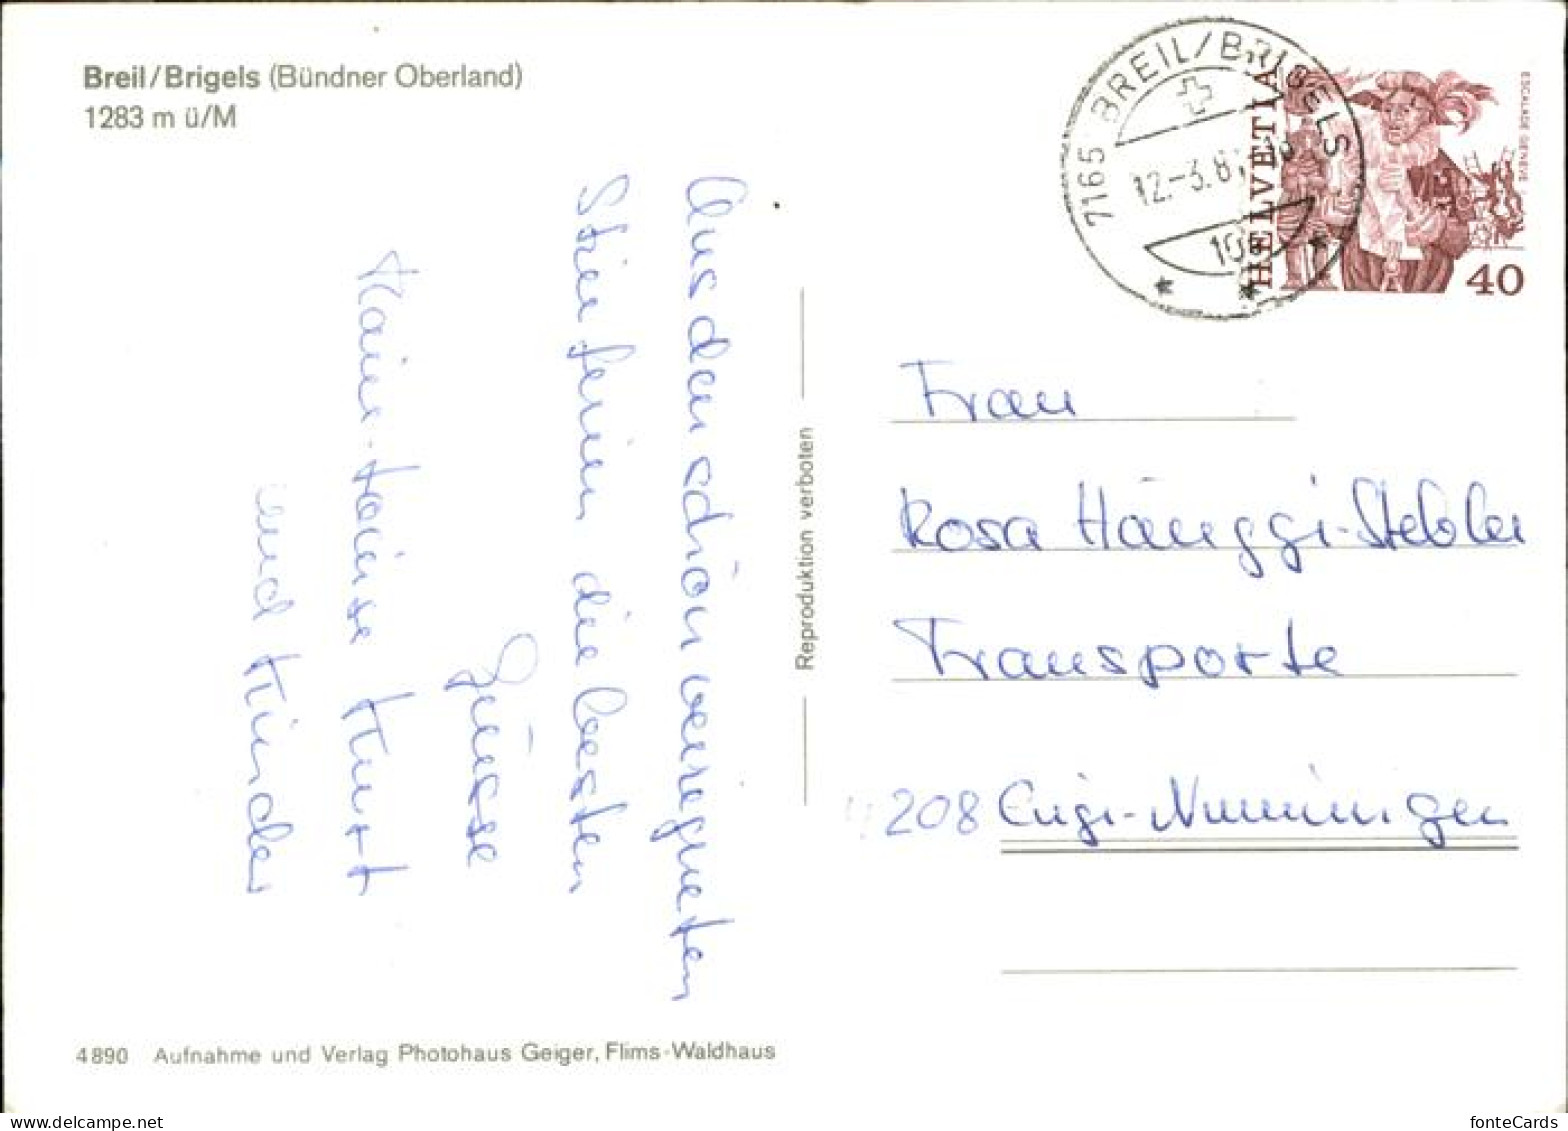 Breil/Brigels (Bündner Oberland)
1283 m ü/M
Aus den schön verregneten
Skiferien die besten
Grüsse
Marie-Louise Kurt
und Kinder
4890 Aufnahme und Verlag Photohaus Geiger, Flims-Waldhaus
Reproduktion verboten
7165 BREIL/BRIGELS
12.-3.8
10
HELVETIA
ESCALADE GENÈVE
40
Frau
Rosa Hänggi-Stebler
Transporte
4208 Engi-Nunningen
www.delcampe.net
fonteCards